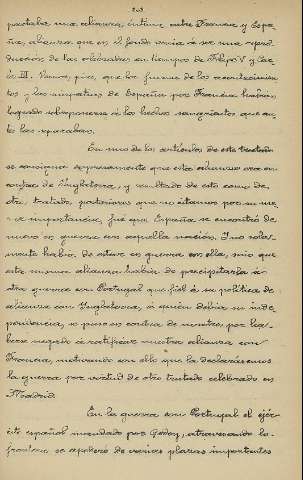 pactaba una alianza, íntima entre Francia y Espa-
ña, alianza que en el fondo venía á ser una repro-
ducción de las celebradas en tiempos de Felipe V y Car-
los III. Vemos, pues, que la fuerza de los acontecimien-
tos y las simpatías de España por Francia habían
logrado sobreponerse á los hechos sangrientos que an-
tes las separaban.
En uno de los artículos de este tratado
se consigna expresamente que esta alianza era en
contra de Inglaterra, y resultado de este como de
otro, tratado, posteriores que no citamos por su me-
nor importancia, fué que España se encontró de
nuevo en guerra con aquella nación. Y no sola-
mente había de estar en guerra con ella, sino que
esta misma alianza había de precipitarla á
otra guerra con Portugal que fiel á su política de
alianza con Inglaterra, á quien debía su inde-
pendencia, se puso en contra de nosotros por ha-
berse negado á ratificar nuestra alianza con
Francia, motivando con ello que la declarásemos
la guerra por virtud de otro tratado celebrado en
Madrid.
En la guerra con Portugal el ejér-
cito español mandado por Godoy, atravesando la
frontera se apoderó de varias plazas importantes